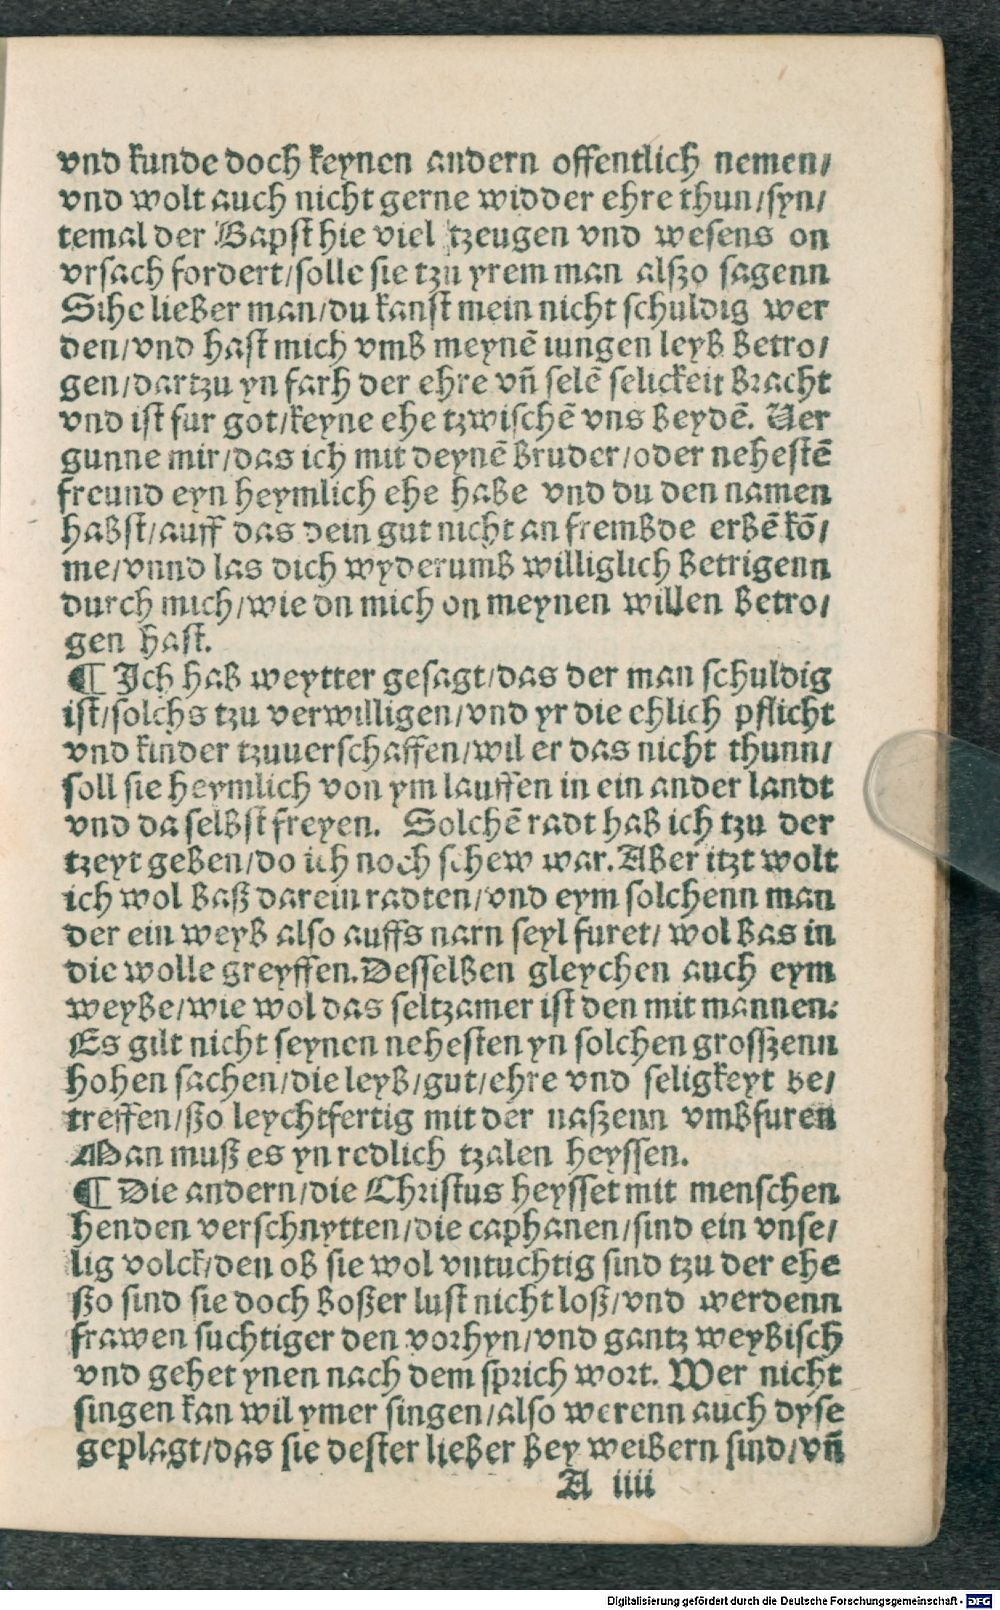 vnd kunde doch keynen andern offentlich nemen/
vnd wolt auch nicht gerne widder ehre thun/syn/
temal der Bapst hie viel tzeugen vnd wesens on
vrsach fordert/solle sie tzu yrem man alszo sagenn
Sihe lieber man/du kanst mein nicht schuldig wer
den/vnd hast mich vmb meynē iungen leyb betro/
gen/dartzu yn farh der ehre vñ selē selickeit bracht
vnd ist fur got/keyne ehe tzwischē vns beydē. Ver
gunne mir/das ich mit deynē bruder/oder nehestē
freund eyn heymlich ehe habe vnd du den namen
habst/auff das dein gut nicht an frembde erbē kō/
me/vnnd las dich wyderumb williglich betrigenn
durch mich/wie dn mich on meynen willen betro/
gen hast.
¶ Ich hab weytter gesagt/das der man schuldig
ist/solchs tzu verwilligen/vnd yr die ehlich pflicht
vnd kinder tzuuerschaffen/wil er das nicht thunn/
soll sie heymlich von ym lauffen in ein ander landt
vnd da selbst freyen. Solchē radt hab ich tzu der
tzeyt geben/do ich noch schew war. Aber itzt wolt
ich wol baß darein radten/vnd eym solchenn man
der ein weyb also auffs narn seyl furet/ wol bas in
die wolle greyffen. Desselben gleychen auch eym
weybe/wie wol das seltzamer ist den mit mannen:
Es gilt nicht seynen nehesten yn solchen grosszenn
hohen sachen/die leyb/gut/ehre vnd seligkeyt be/
treffen/ßo leychtfertig mit der naszenn vmbfuren
Man muß es yn redlich tzalen heyssen.
¶ Die andern/die Christus heysset mit menschen
henden verschnytten/die caphanen/sind ein vnse/
lig volck/den ob sie wol vntuchtig sind tzu der ehe
ßo sind sie doch boßer lust nicht loß/vnd werdenn
frawen suchtiger den vorhyn/vnd gantz weybisch
vnd gehet ynen nach dem sprich wort. Wer nicht
singen kan wil ymer singen/also werenn auch dyse
geplagt/das sie dester lieber bey weibern sind/vñ
A iiii
Digitalisierung gefördert durch die Deutsche Forschungsgemeinschaft - DFG